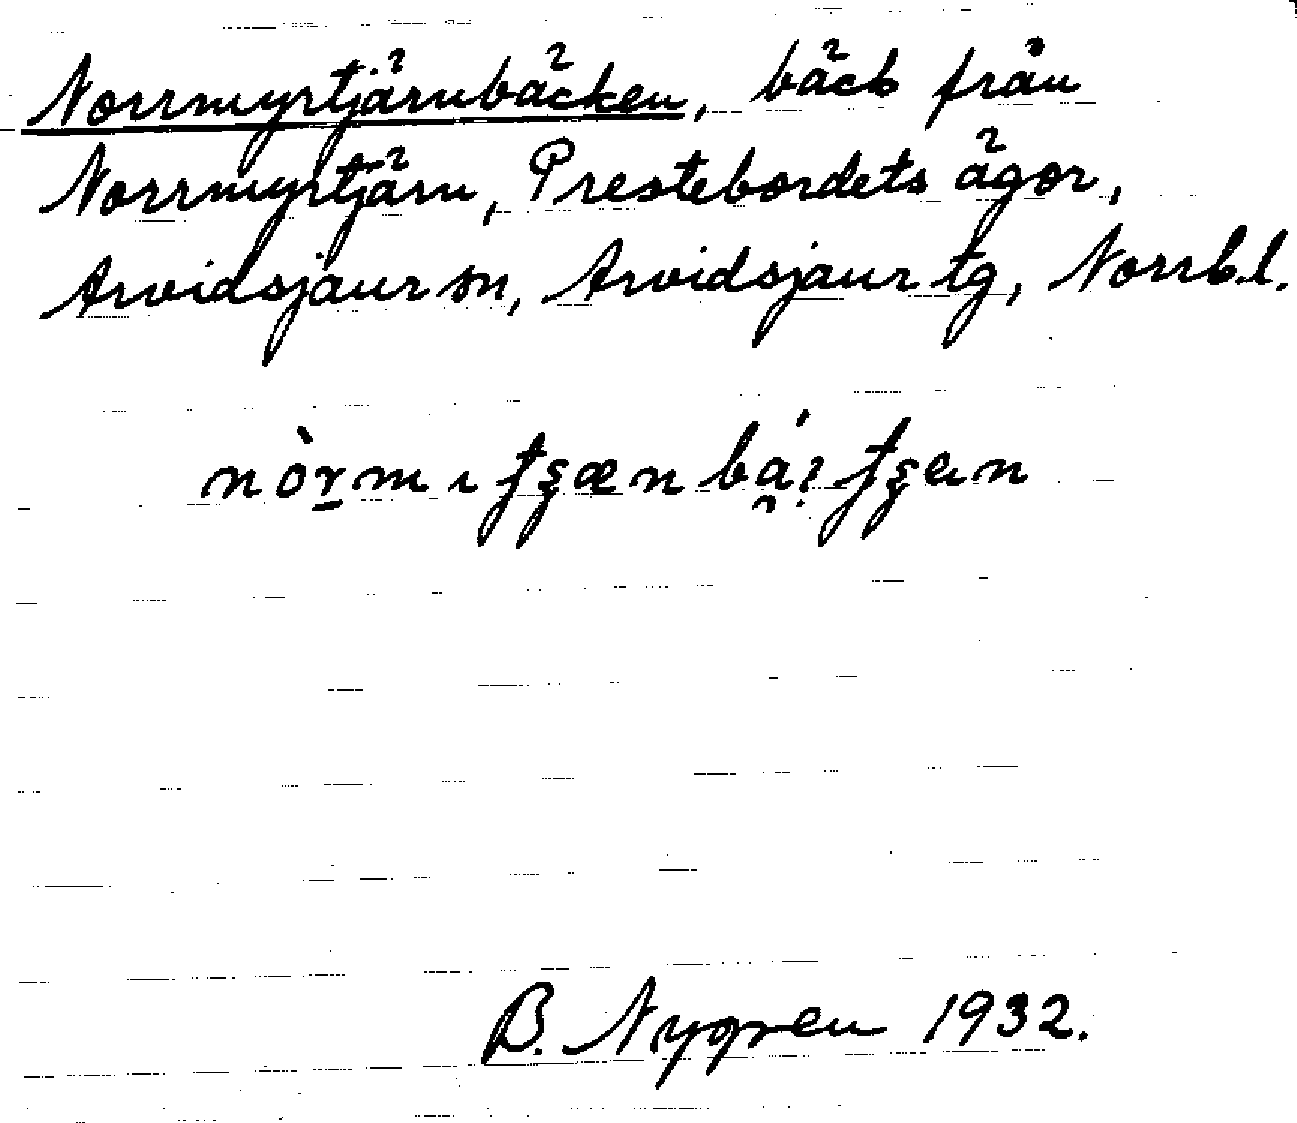 Norrmyrtjärnbäcken, bäck från
Norrmyrtjärn, Prestebordets ägor,
Arvidsjaur sn, Arvidsjaur tg, Norrb.l.
B. Nygren 1932.